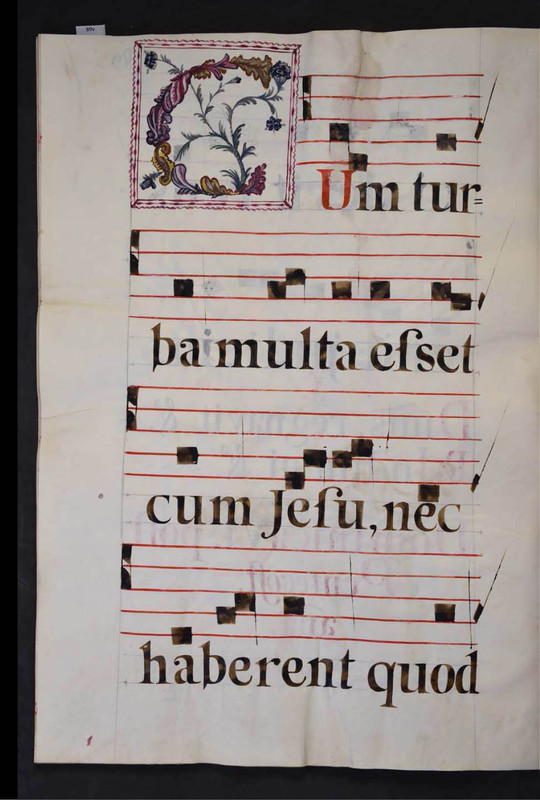 CUm tur=
ba multa eſset
cum Jeſu, nec
haberent quod